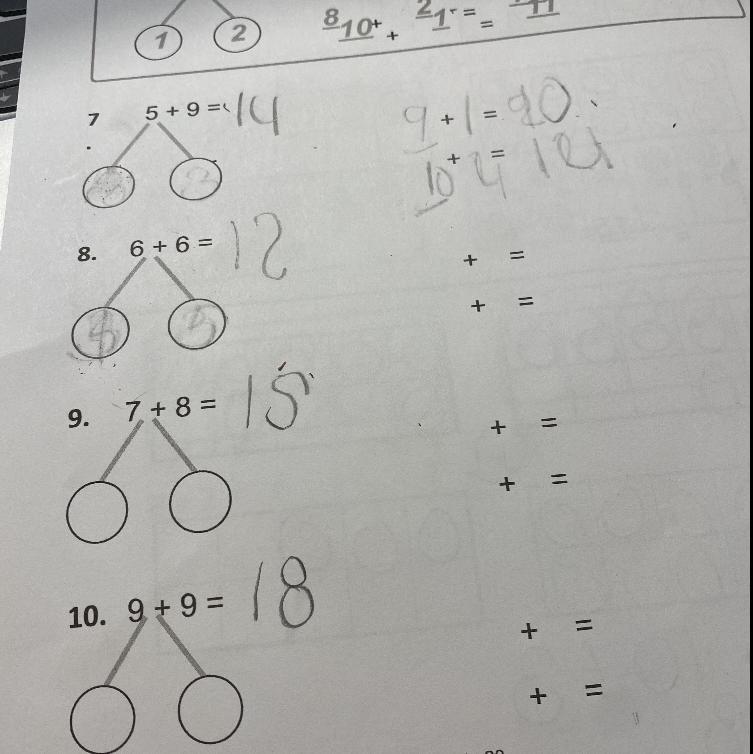 1 2
8 10 + + 2 1 - = = 11
7. 5 + 9 = 14
9 + 1 = 20
10 + 4 = 14
8. 6 + 6 = 12
+ =
+ =
9. 7 + 8 = 15
+ =
+ =
10. 9 + 9 = 18
+ =
+ =